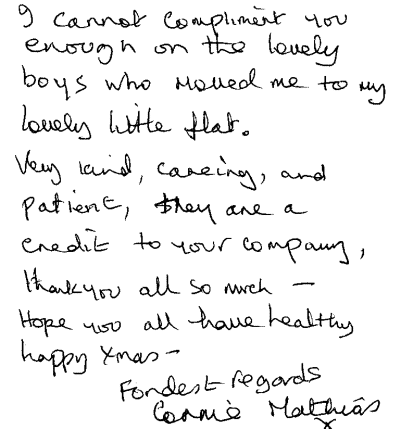 I cannot compliment you
enough on the lovely
boys who moved me to my
lovely little flat.
Very kind, careing, and
patient, they are a
credit to your company,
thankyou all so much –
Hope you all have healthy
happy Xmas –
Fondest regards
Connie Matthias
x